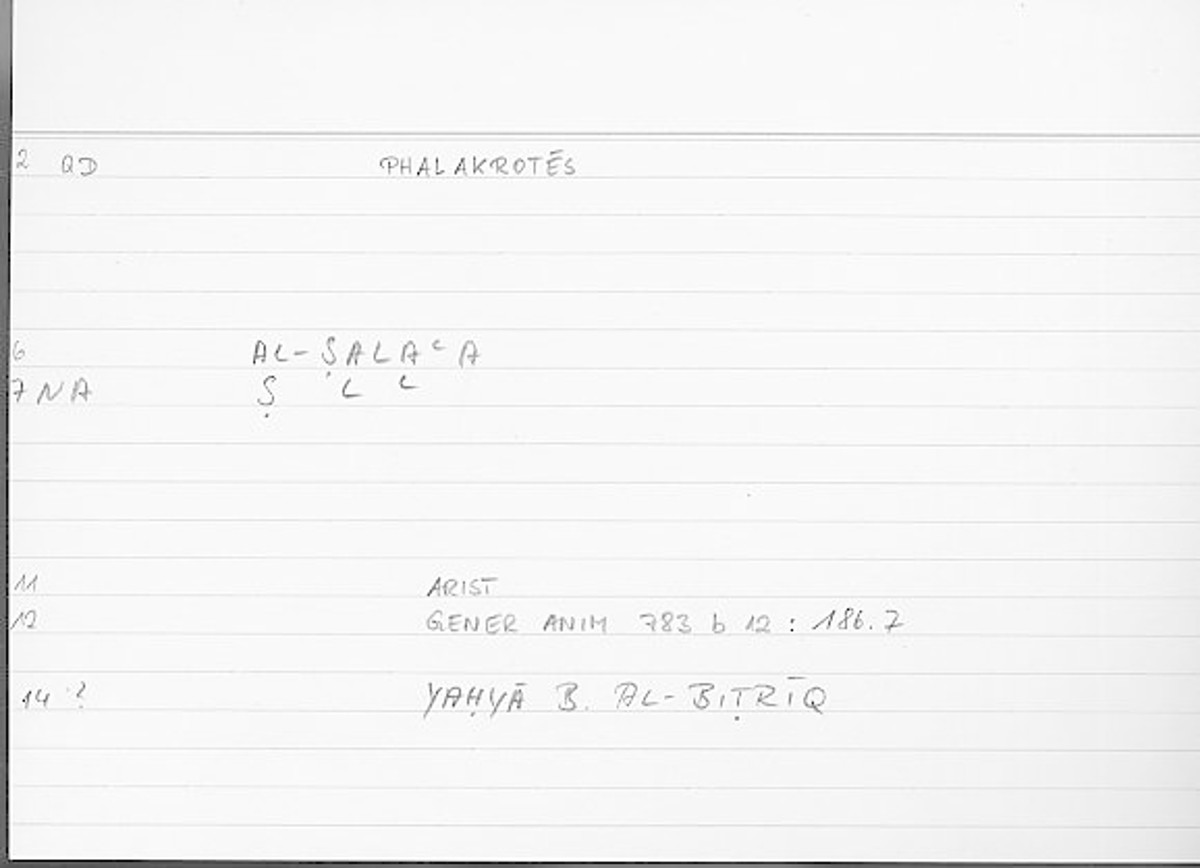 2 QD PHALAKROTĒS
6 AL-ṢALAʿA
7 NA Ṣ L ʿ
11 ARIST
12 GENER ANIM 783 b 12 : 186.7
14 ? YAḤYĀ B. AL-BIṬRĪQ